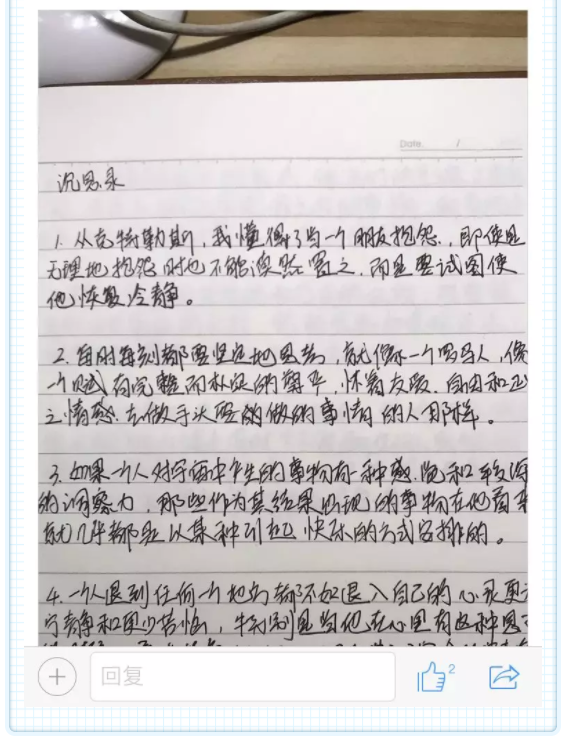 Date /
沉思录
1. 从克特勒斯,我懂得了当一个朋友抱怨,即使是
无理地抱怨时也不能漠然置之,而是要试图使
他恢复冷静。
2. 每时每刻都要坚定地思考,就像一个罗马人,像
一个赋有完整而朴实的尊严,怀着友爱、自由和正
之情感去做手头要做的事情的人那样。
3. 如果一个人对宇宙中产生的事物有一种感觉和较深
的洞察力,那些作为其结果出现的事物在他看来
就几乎都是以某种引起快乐的方式安排的。
4. 一个人退到任何一个地方都不如退入自己的心灵更
宁静和更少苦恼,特别是当他在心里有这种思
回复
2